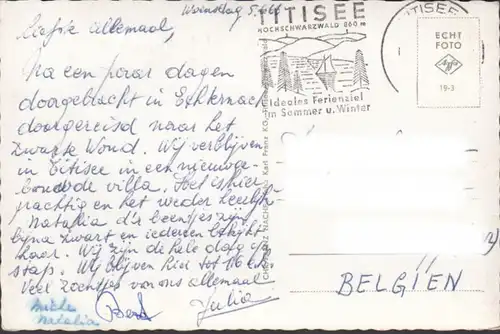 Woensdag 5.
Liefste allemaal,
Na een paar dagen
doorgebracht in Echternach
doorgereisd naar het
zwarte Woud. Wij verblijven
in Titisee in een nieuwge-
bouwde villa. Het is hier
prachtig en het weder heerlijk
Natalia d'r beentjes zijn
bijna zwart en iedereen bekijkt
haar. Wij zijn de hele dag op
stap. Wij blijven hier tot
Veel zoentjes van ons allemaal
Natalia
René Julia
TITISEE
HOCHSCHWARZWALD 860 m
Ideales Ferienziel
im Sommer u. Winter
TITISEE
ECHT
FOTO
Agfa
19-3
BELGIËN